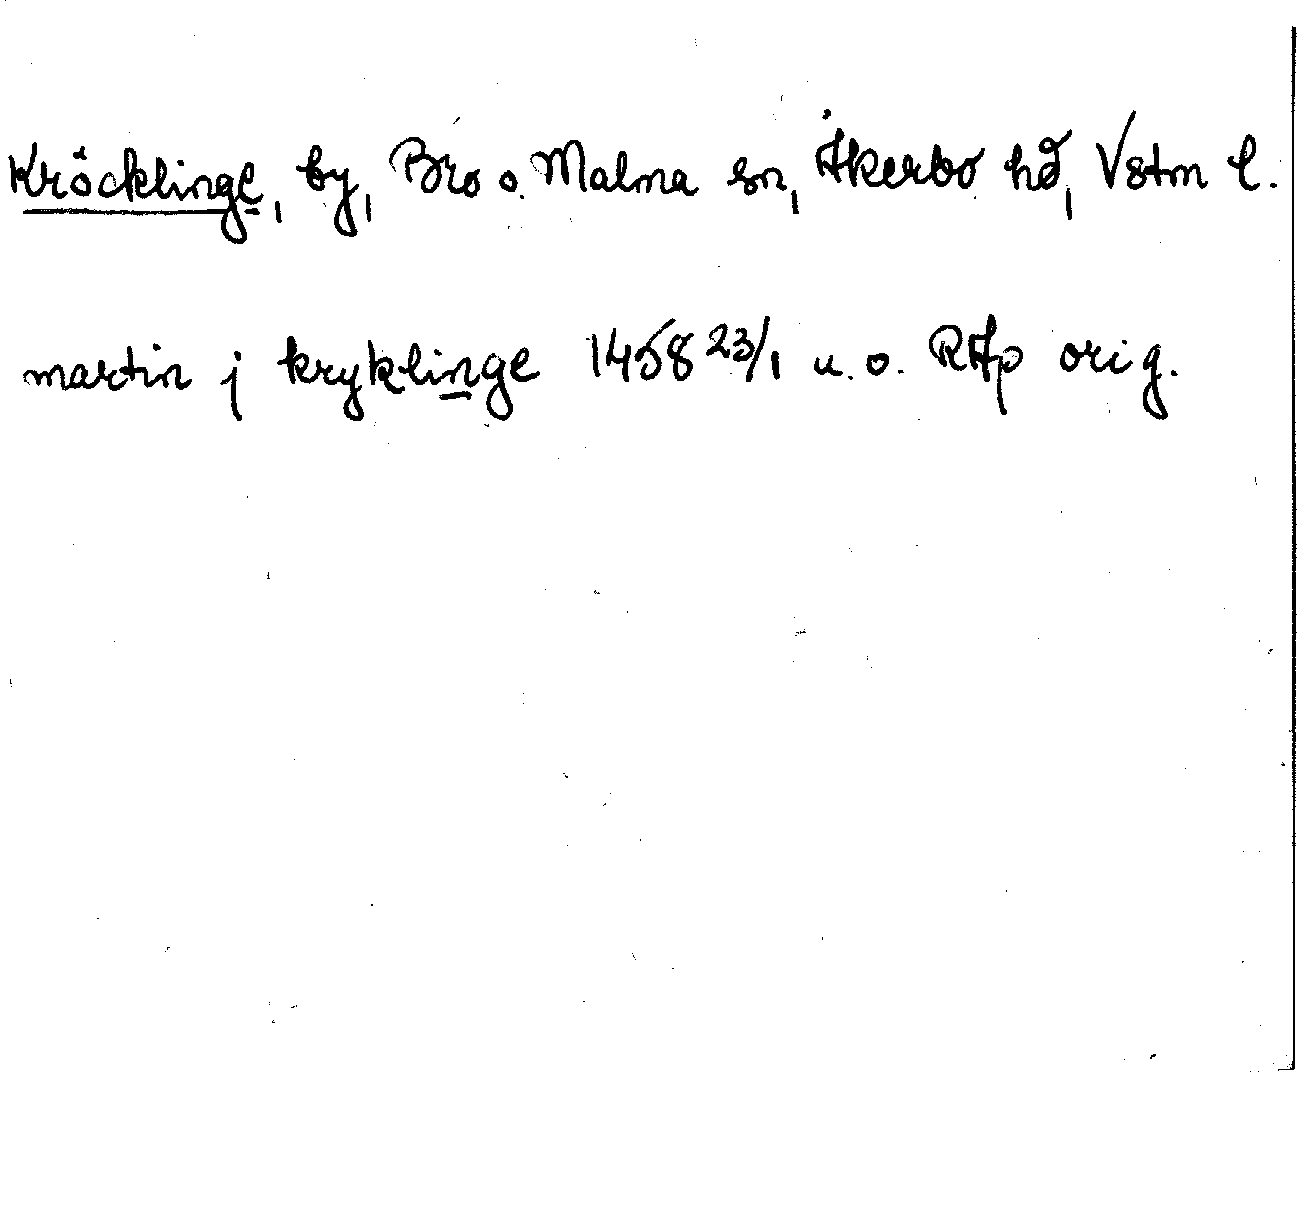 Kröcklinge, by, Bro o. Malma sn, Åkerbo hd, Vstm l.
martin j kryklinge 1458 23/1 u. o. RAp orig.